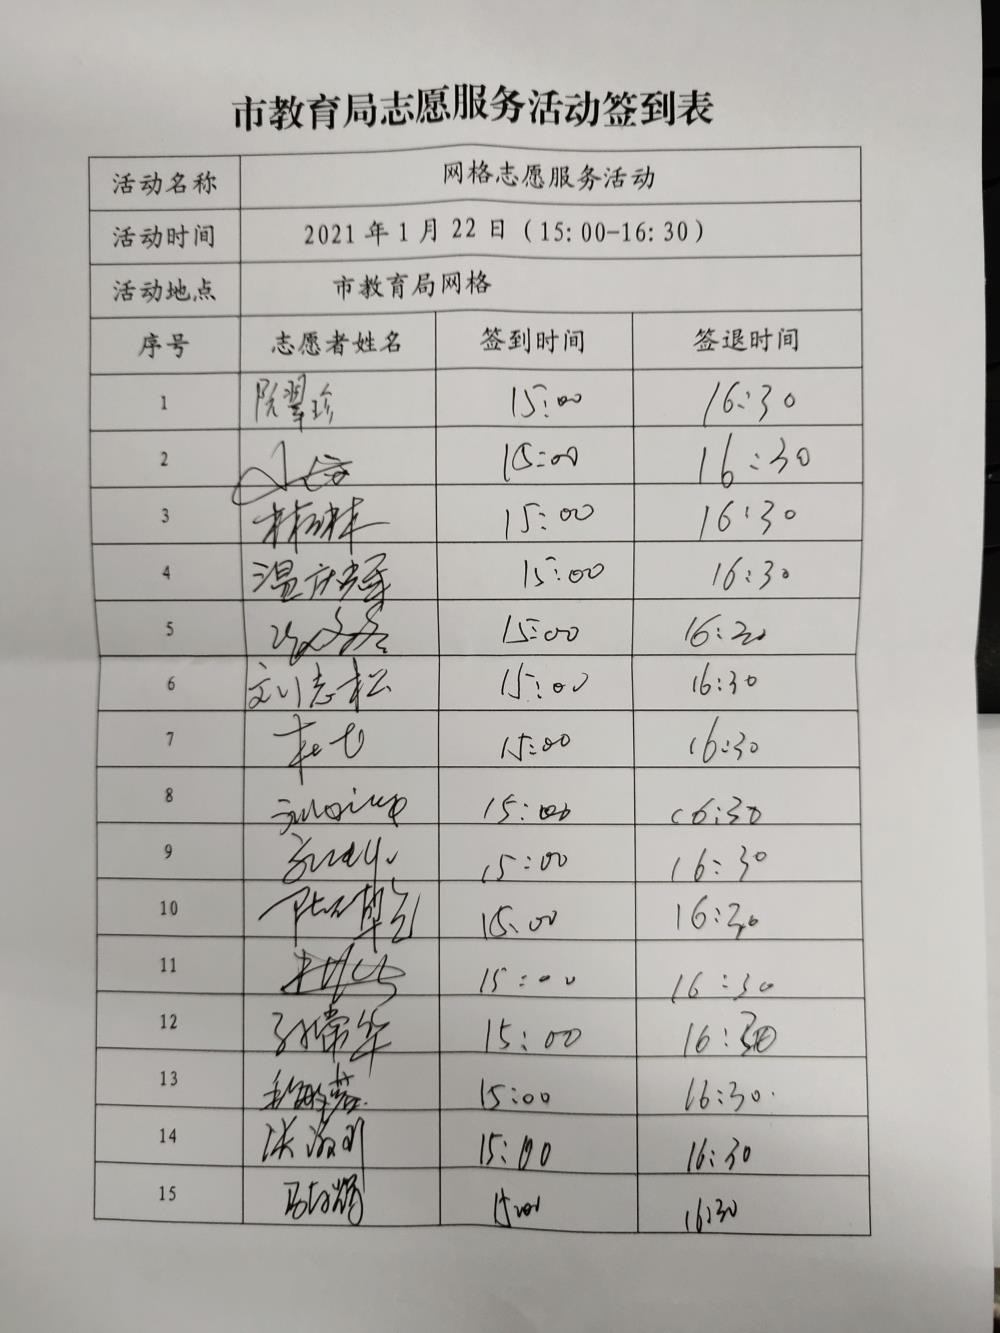 市教育局志愿服务活动签到表
活动名称 网格志愿服务活动
活动时间 2021年1月22日（15:00-16:30）
活动地点 市教育局网格
序号 志愿者姓名 签到时间 签退时间
1 阮翠珍 15:00 16:30
2 15:00 16:30
3 15:00 16:30
4 温庆辉 15:00 16:30
5 15:00 16:30
6 刘志松 15:00 16:30
7 15:00 16:30
8 15:00 16:30
9 15:00 16:30
10 15:00 16:30
11 15:00 16:30
12 孙常华 15:00 16:30
13 15:00 16:30
14 15:00 16:30
15 15:00 16:30